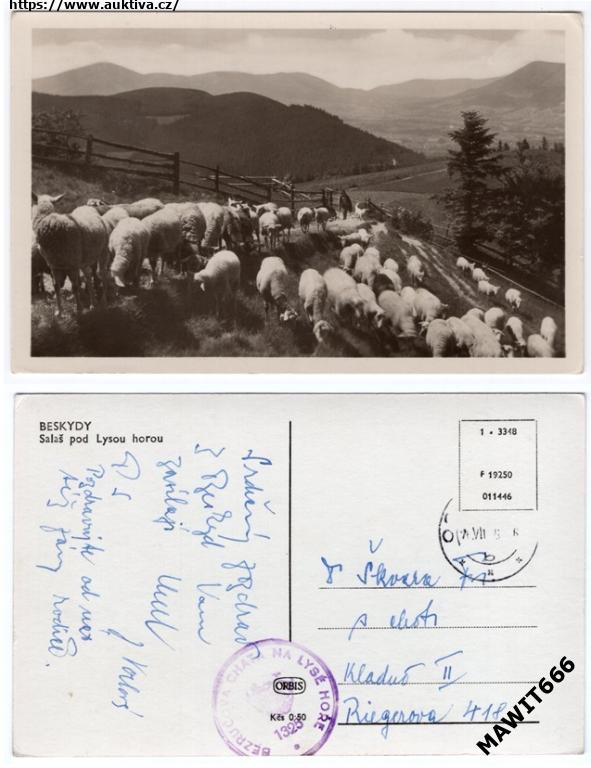 https://www.auktiva.cz/
BESKYDY
Salaš pod Lysou horou
Srdečný pozdrav
z Beskyd Vám
zasílají
P S
Pozdravujte od nás
též Vaše rodiče.
1 - 3348
F 19250
011446
Škvara Fr
s chotí
Kladno II
Riegerova 418
BEZRUČOVA CHATA NA LYSÉ HOŘE
1325
ORBIS
Kčs 0·50
MAWIT666